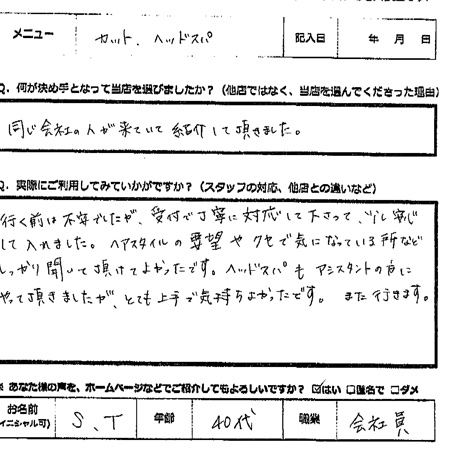 メニュー カット、ヘッドスパ 記入日 年 月 日
Q. 何が決め手となって当店を選びましたか？（他店ではなく、当店を選んでくださった理由）
同じ会社の人が来ていて紹介して頂きました。
Q. 実際にご利用してみていかがですか？（スタッフの対応、他店との違いなど）
行く前は不安でしたが、受付で丁寧に対応して下さって、少し安心
して入れました。ヘアスタイルの要望やクセで気になっている所など
しっかり聞いて頂けてよかったです。ヘッドスパもアシスタントの方に
やって頂きましたが、とても上手で気持ちよかったです。また行きます。
※ あなた様の声を、ホームページなどでご紹介してもよろしいですか？ ☑はい □匿名で □ダメ
お名前 S、T 年齢 40代 職業 会社員
イニシャル可)